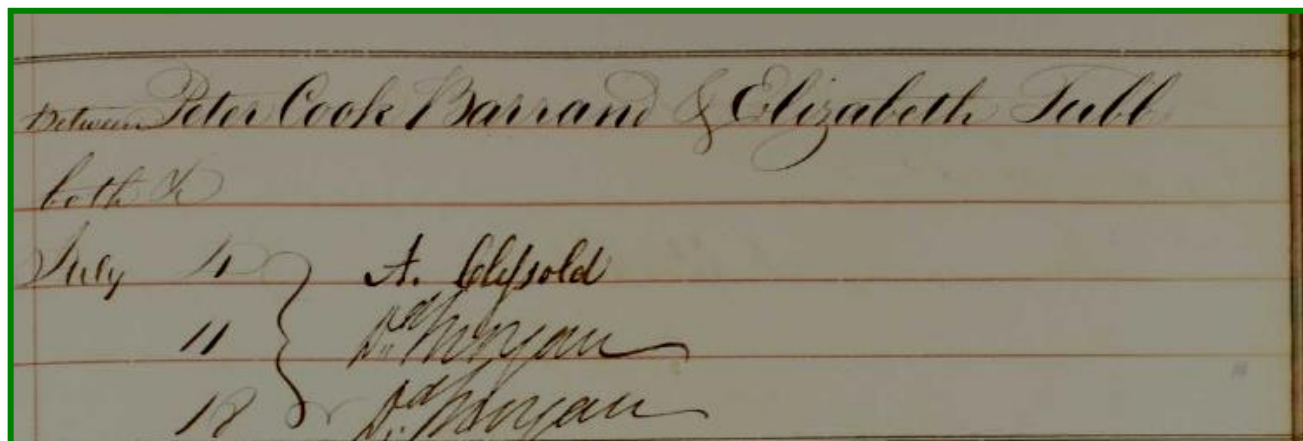 Between Peter Cook Barrand & Elizabeth Tubb
both &c
July 4 A. Clissold
11 Dd. Morgan
18 Dd. Morgan